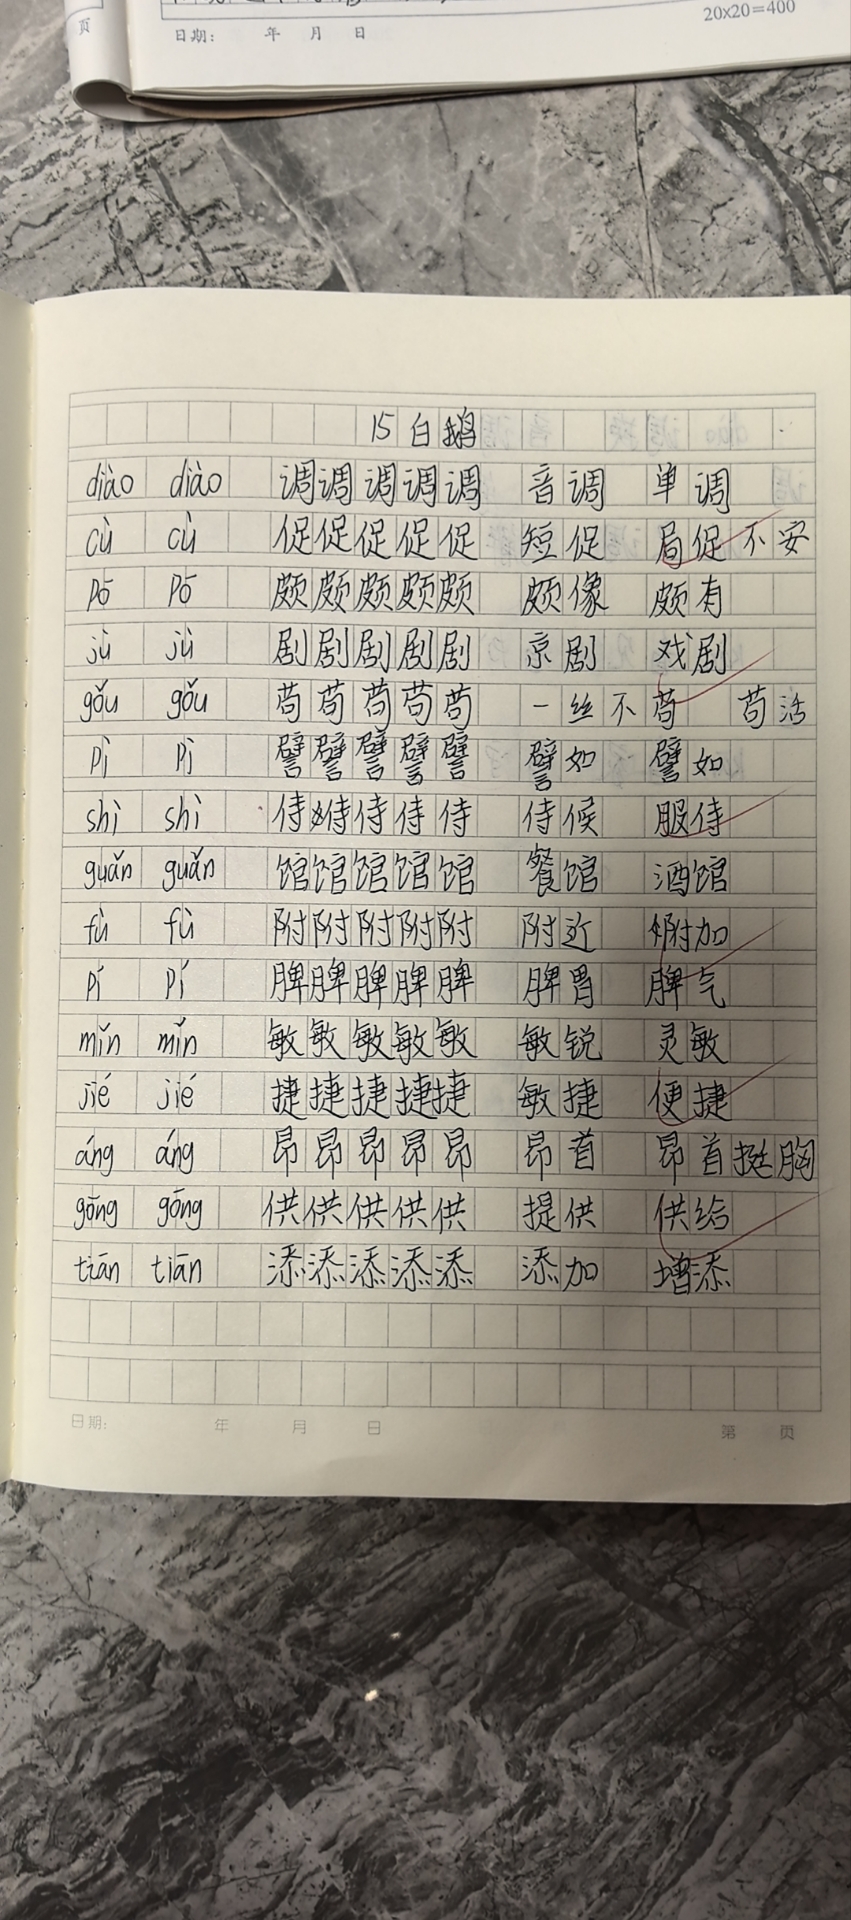 页
20x20=400
日期: 年 月 日
15 白鹅
diào diào 调调调调调 音调 单调
cù cù 促促促促促 短促 局促不安
pō pō 颇颇颇颇颇 颇像 颇有
jù jù 剧剧剧剧剧 京剧 戏剧
gǒu gǒu 苟苟苟苟苟 一丝不苟 苟活
pì pì 譬譬譬譬譬 譬如 譬如
shì shì 侍侍侍侍侍 侍候 服侍
guǎn guǎn 馆馆馆馆馆 餐馆 酒馆
fù fù 附附附附附 附近 附加
pí pí 脾脾脾脾脾 脾胃 脾气
mǐn mǐn 敏敏敏敏敏 敏锐 灵敏
jié jié 捷捷捷捷捷 敏捷 便捷
áng áng 昂昂昂昂昂 昂首 昂首挺胸
gōng gōng 供供供供供 提供 供给
tiān tiān 添添添添添 添加 增添
日期: 年 月 日 第 页